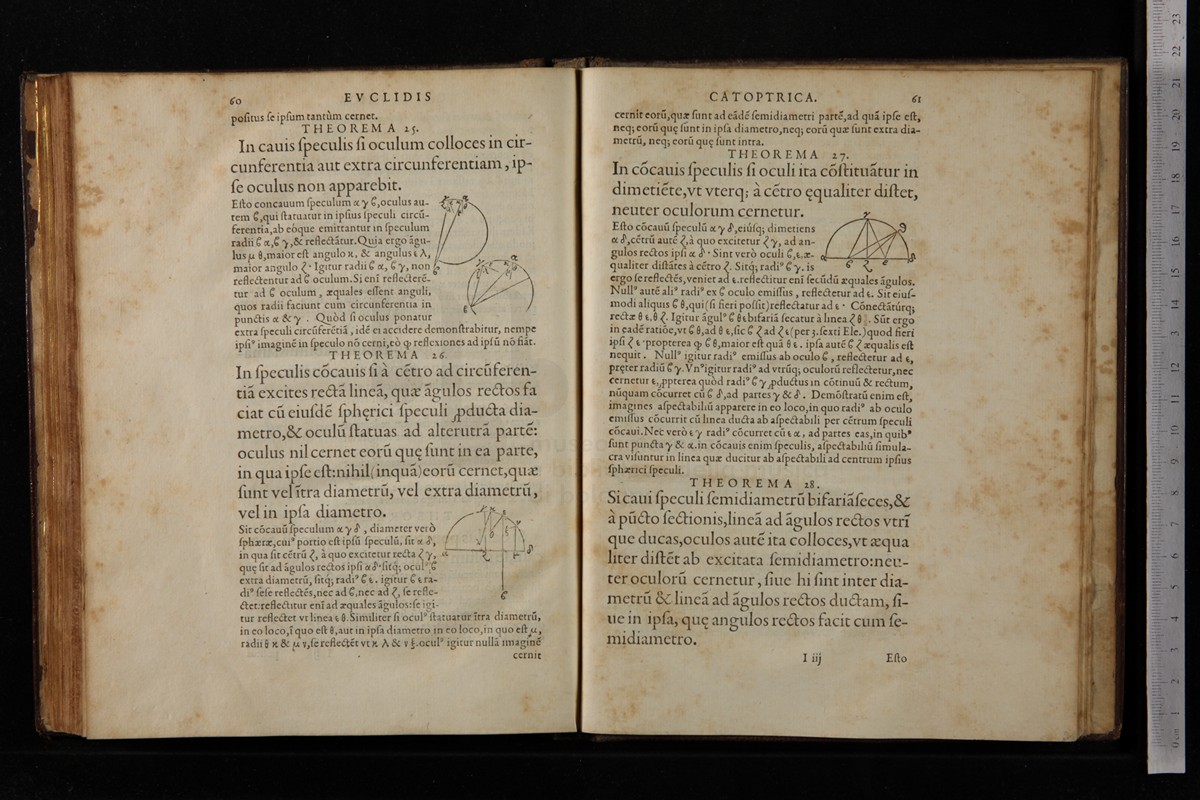 60 EVCLIDIS
positus se ipsum tantùm cernet.
THEOREMA 25.
In cauis speculis si oculum colloces in cir-
cunferentia aut extra circunferentiam, ip-
se oculus non apparebit.
Esto concauum speculum α γ ϐ, oculus au-
tem ϐ, qui statuatur in ipsius speculi circũ-
ferentia, ab eòque emittantur in speculum
radii ϐ α, ϐ γ, & reflectãtur. Quia ergo ãgu-
lus μ θ, maior est angulo κ, & angulus ε λ,
maior angulo ζ. Igitur radii ϐ α, ϐ γ, non
reflectentur ad ϐ oculum. Si enĩ reflecterẽ-
tur ad ϐ oculum, æquales essent anguli,
quos radii faciunt cum circunferentia in
punctis α & γ. Quòd si oculus ponatur
extra speculi circũferẽtiã, idẽ ei accidere demonstrabitur, nempe
ipsi⁹ imaginẽ in speculo nõ cerni, eò ꝙ reflexiones ad ipsũ nõ fiãt.
THEOREMA 26.
In speculis cõcauis si à cẽtro ad circũferen-
tiã excites rectã lineã, quæ ãgulos rectos fa
ciat cũ eiusdẽ sphęrici speculi ꝓducta dia-
metro, & oculũ statuas ad alterutrã partẽ:
oculus nil cernet eorũ quę sunt in ea parte,
in qua ipse est: nihil (inquã) eorũ cernet, quæ
sunt vel ĩtra diametrũ, vel extra diametrũ,
vel in ipsa diametro.
Sit cõcauũ speculum α γ δ, diameter verò
sphæræ, cui⁹ portio est ipsũ speculũ, sit α δ,
in qua sit cẽtrũ ζ, à quo excitetur recta ζ γ,
quę sit ad ãgulos rectos ipsi α δ. sitq; ocul⁹ ϐ
extra diametrũ, sitq; radi⁹ ϐ ε. igitur ϐ ε ra-
di⁹ sese reflectẽs, nec ad ϐ, nec ad ζ, se refle-
ctet: reflectitur enĩ ad æquales ãgulos: se igi-
tur reflectet vt linea ε θ. Similiter si ocul⁹ statuatur ĩtra diametrũ,
in eo loco, ĩ quo est θ, aut in ipsa diametro in eo loco, in quo est μ,
radii θ κ & μ ν, se reflectẽt vt κ λ & ν ξ. ocul⁹ igitur nullã imaginẽ
cernit
CATOPTRICA. 61
cernit eorũ, quæ sunt ad eãdẽ semidiametri partẽ, ad quã ipse est,
neq; eorũ quę sunt in ipsa diametro, neq; eorũ quæ sunt extra dia-
metrũ, neq; eorũ quę sunt intra.
THEOREMA 27.
In cõcauis speculis si oculi ita cõstituãtur in
dimetiẽte, vt vterq; à cẽtro ęqualiter distet,
neuter oculorum cernetur.
Esto cõcauũ speculũ α γ δ, eiúsq; dimetiens
α δ, cẽtrũ autẽ ζ, à quo excitetur ζ γ, ad an-
gulos rectos ipsi α δ. Sint verò oculi ϐ, ε. æ-
qualiter distãtes à cẽtro ζ. Sitq; radi⁹ ϐ γ. is
ergo se reflectẽs, veniet ad ε. reflectitur enĩ secũdũ æquales ãgulos.
Null⁹ autẽ ali⁹ radi⁹ ex ϐ oculo emissus, reflectetur ad ε. Sit eius-
modi aliquis ϐ θ, qui (si fieri possit) reflectatur ad ε. Cõnectãtúrq;
rectæ θ ε. θ ζ. Igitur ãgul⁹ ϐ θ ε bifariã secatur à linea ζ θ. Sũt ergo
in eadẽ ratiõe, vt ϐ θ, ad θ ε, sic ϐ ζ ad ζ ε (per 3. sexti Ele.) quod fieri
nequit. Null⁹ igitur radi⁹ emissus ab oculo ϐ, reflectetur ad ε,
pręter radiũ ϐ γ. Vn⁹ igitur radi⁹ ad vtrũq; oculorũ reflectetur, nec
cernetur ε, ꝓpterea quòd radi⁹ ϐ γ ꝓductus in cõtinuũ & rectum,
nũquam cõcurret cũ ϐ δ, ad partes γ & δ. Demõstratũ enim est,
imagines aspectabiliũ apparere in eo loco, in quo radi⁹ ab oculo
emissus cõcurrit cũ linea ducta ab aspectabili per cẽtrum speculi
cõcaui. Nec verò ε γ radi⁹ cõcurret cũ ε α, ad partes eas, in quib⁹
sunt puncta γ & α. in cõcauis enim speculis, aspectabiliũ simula-
cra visuntur in linea quæ ducitur ab aspectabili ad centrum ipsius
sphærici speculi.
THEOREMA 28.
Si caui speculi semidiametrũ bifariã seces, &
à pũcto sectionis, lineã ad ãgulos rectos vtrĩ
que ducas, oculos autẽ ita colloces, vt æqua
liter distẽt ab excitata semidiametro: neu-
ter oculorũ cernetur, siue hi sint inter dia-
metrũ & lineã ad ãgulos rectos ductam, si-
ue in ipsa, quę angulos rectos facit cum se-
midiametro.
I iij Esto